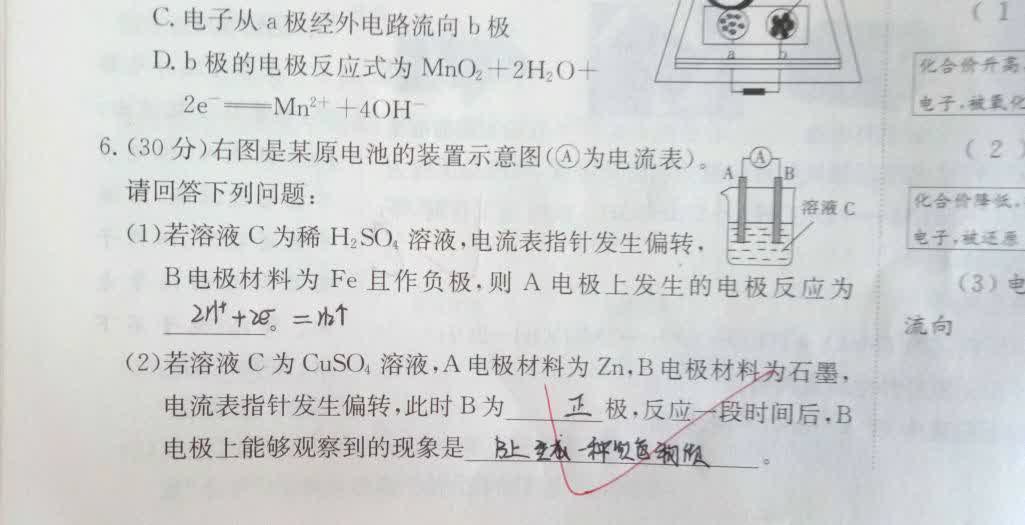 C. 电子从 a 极经外电路流向 b 极
D. b 极的电极反应式为 MnO₂+2H₂O+
2e⁻══Mn²⁺+4OH⁻
a b
6. (30 分)右图是某原电池的装置示意图(Ⓐ为电流表)。
请回答下列问题:
A Ⓐ B
溶液 C
(1)若溶液 C 为稀 H₂SO₄ 溶液,电流表指针发生偏转,
B 电极材料为 Fe 且作负极,则 A 电极上发生的电极反应为
2H⁺+2e⁻。=H₂↑
(2)若溶液 C 为 CuSO₄ 溶液,A 电极材料为 Zn,B 电极材料为石墨,
电流表指针发生偏转,此时 B 为 正 极,反应一段时间后,B
电极上能够观察到的现象是 B上 一种 色物质 。
(1
化合价升高,
电子,被氧化
(2)
化合价降低,
电子,被还原
(3)电
流向